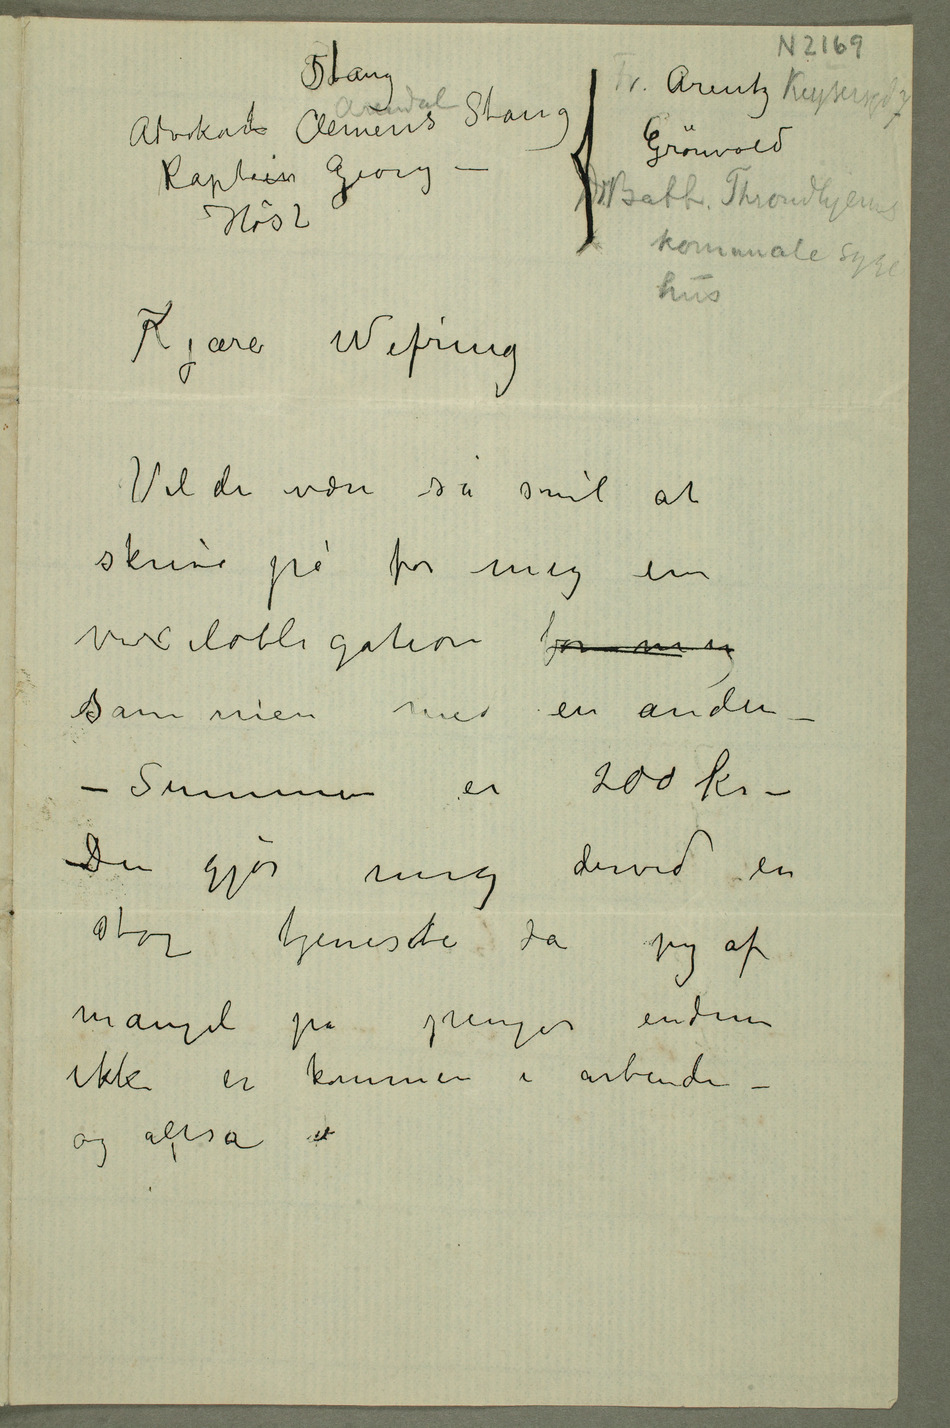 N 2169
Stang
Arendal
Advokat Clemens Stang
Kaptein Georg –
Høst
Fr. Arentz Keysersgd 7
Grönvold
Dr Batt. Throndhjems
komunale syge
hus
Kjære Wefring
Vil du være så snil at
skrive på for mig en
vexelobligation for mig
sammen med en anden –
– Summen er 200 kr –
Du gjør mig derved en
stor tjeneste da jeg af
mangel på penger endnu
ikke er kommen i arbeide –
og altså